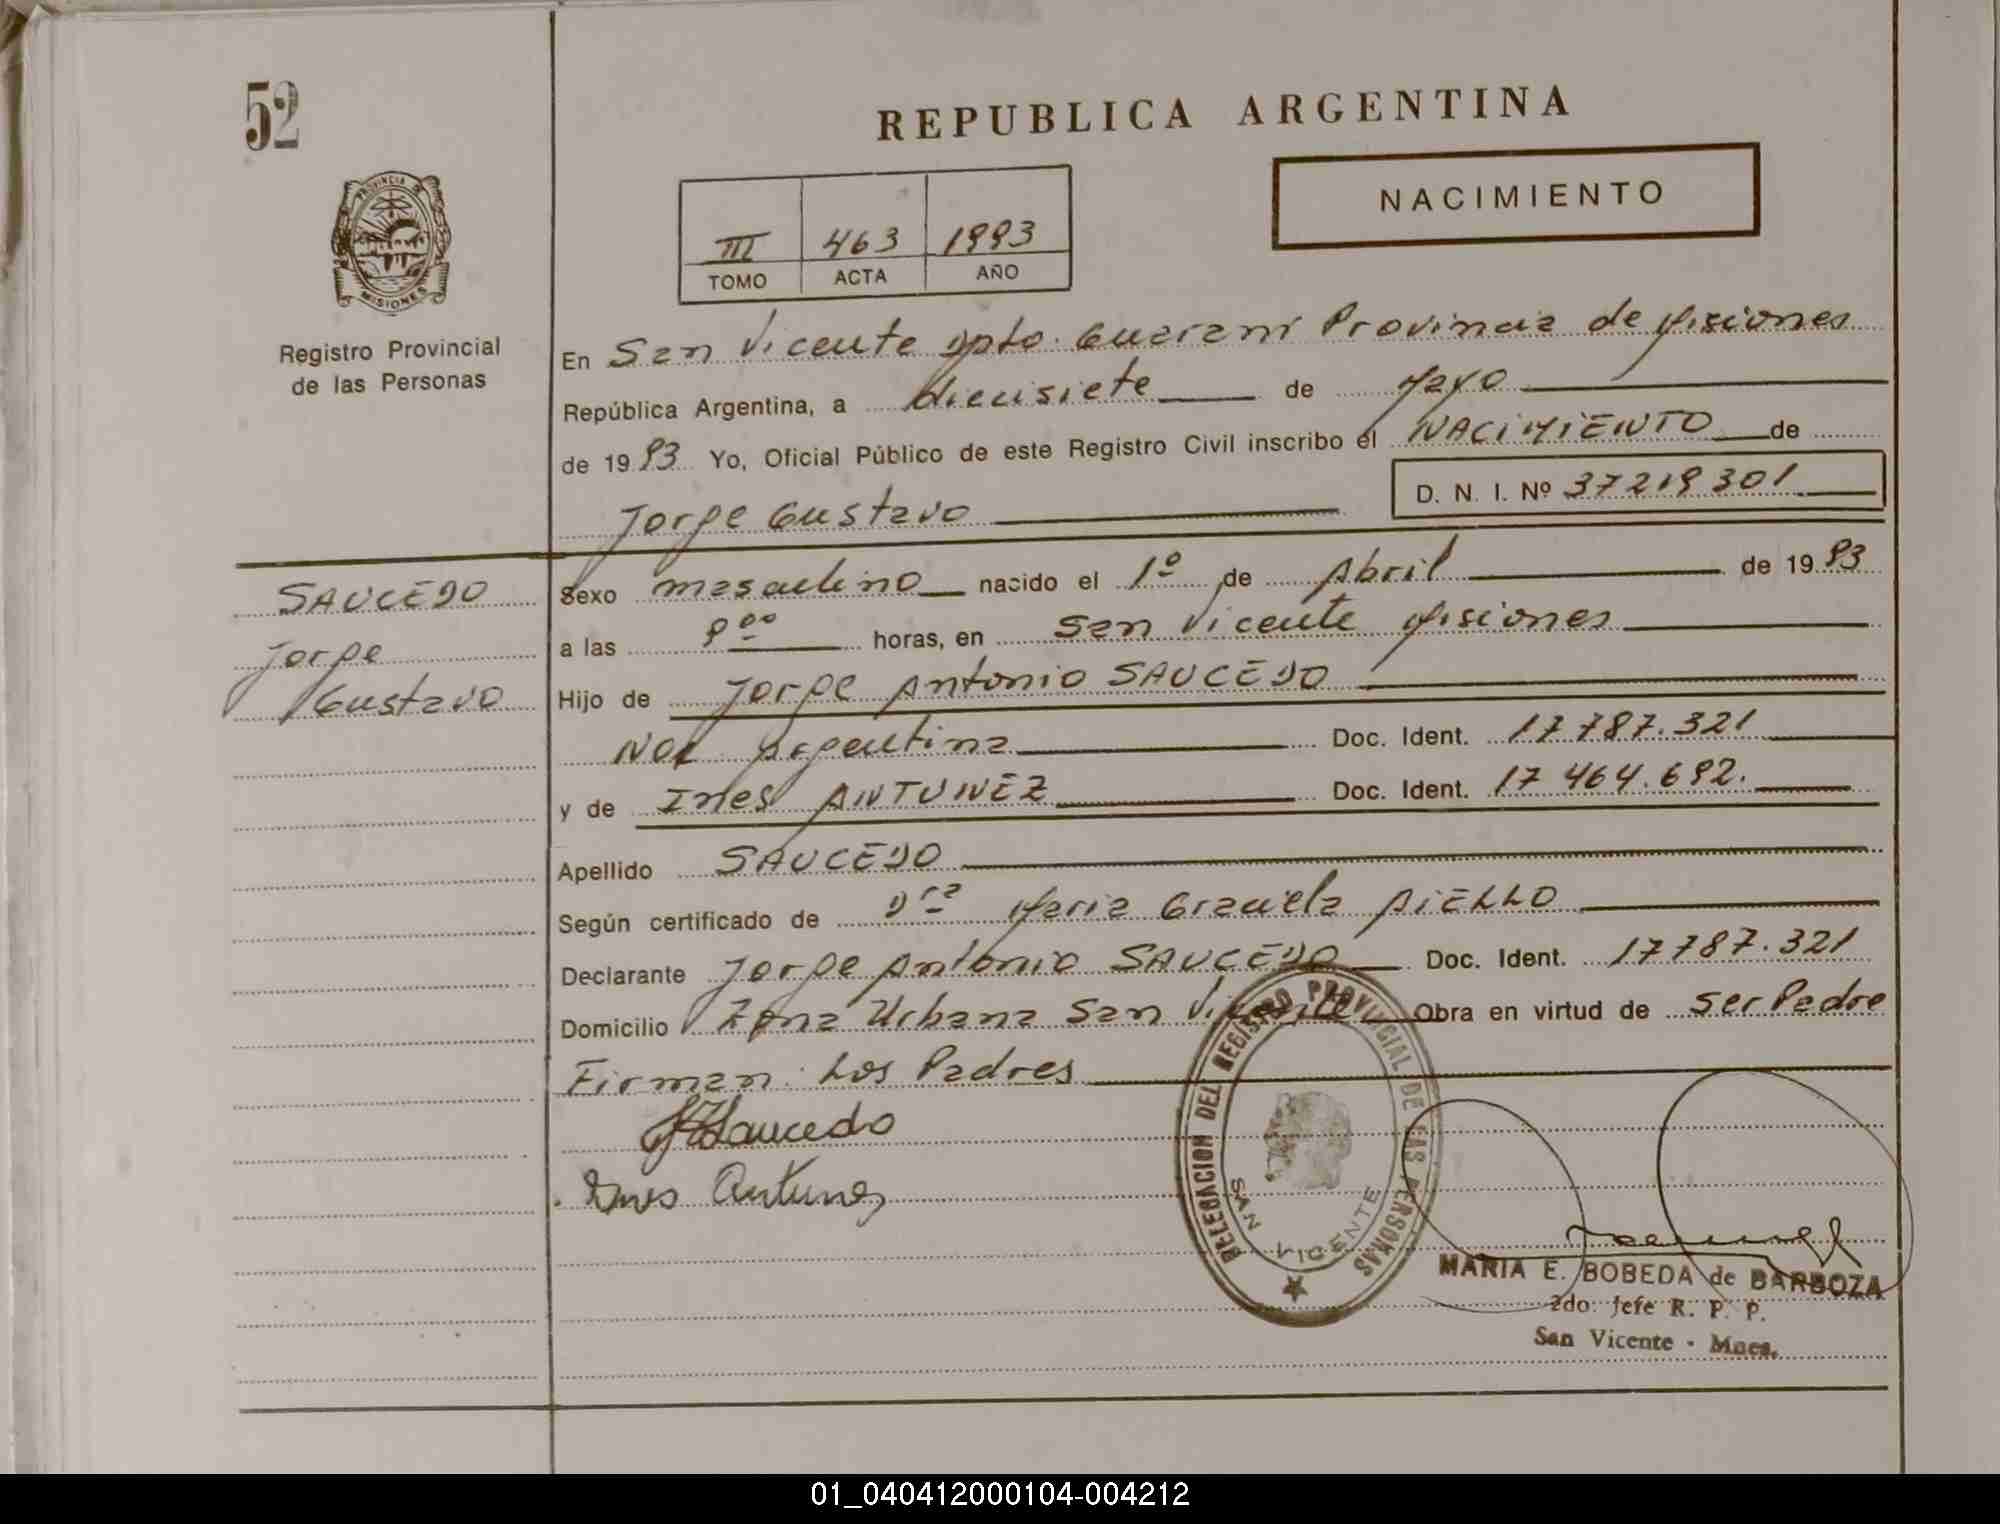 52
REPUBLICA ARGENTINA
NACIMIENTO
PROVINCIA DE
MISIONES
III 463 1993
TOMO ACTA AÑO
Registro Provincial
de las Personas
En San Vicente Dpto. Guarani Provincia de Misiones
República Argentina, a diecisiete de Mayo
de 1993 Yo, Oficial Público de este Registro Civil inscribo el NACIMIENTO de
D. N. I. Nº 37219301
Jorge Gustavo
SAUCEDO
Jorge
Gustavo
Sexo masculino nacido el 1º de Abril de 1993
a las 9 00 horas, en San Vicente Misiones
Hijo de Jorge Antonio SAUCEDO
Nac Argentina Doc. Ident. 17 787.321
y de Ines ANTUNEZ Doc. Ident. 17 464.692.
Apellido SAUCEDO
Según certificado de Dra Maria Graciela AIELLO
Declarante Jorge Antonio SAUCEDO Doc. Ident. 17787.321
Domicilio Zona Urbana San Vicente Obra en virtud de ser Padre
Firman: Los Padres
Saucedo
Ines Antunez
DELEGACION DEL REGISTRO PROVINCIAL DE LAS PERSONAS
SAN VICENTE
MARIA E. BOBEDA de BARBOZA
2do. Jefe R. P. P.
San Vicente - Mnes.
01_040412000104-004212